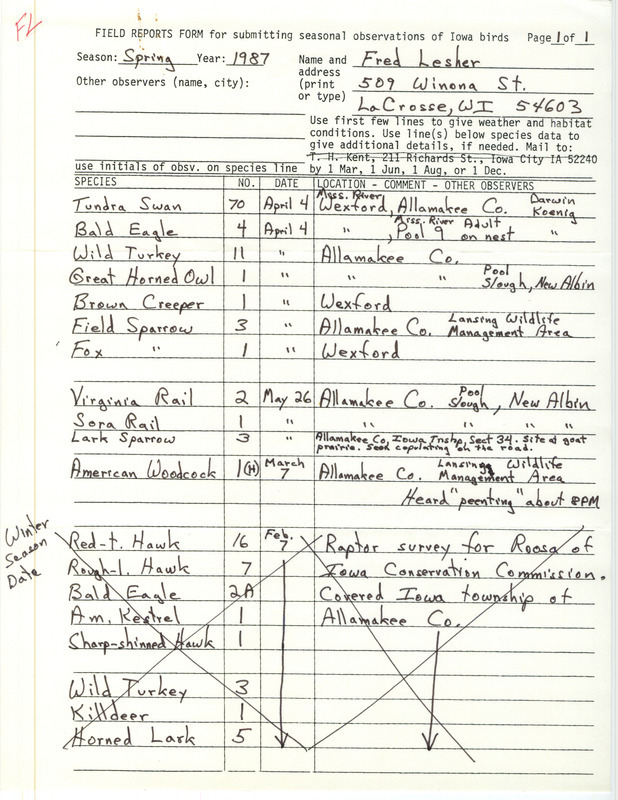 FL
FIELD REPORTS FORM for submitting seasonal observations of Iowa birds Page 1 of 1
Season: Spring Year: 1987 Name and Fred Lesher
address
Other observers (name, city): (print 509 Winona St.
or type) LaCrosse, WI 54603
Use first few lines to give weather and habitat
conditions. Use line(s) below species data to
give additional details, if needed. Mail to:
T. H. Kent, 211 Richards St., Iowa City IA 52240
use initials of obsv. on species line by 1 Mar, 1 Jun, 1 Aug, or 1 Dec.
SPECIES NO. DATE LOCATION - COMMENT - OTHER OBSERVERS
Tundra Swan 70 April 4 Miss. River Wexford, Allamakee Co. Darwin Koenig
Bald Eagle 4 April 4 " , Miss. River Pool 9 Adult on nest "
Wild Turkey 11 " Allamakee Co.
Great Horned Owl 1 " " " Pool Slough, New Albin
Brown Creeper 1 " Wexford
Field Sparrow 3 " Allamakee Co. Lansing Wildlife Management Area
Fox " 1 " Wexford
Virginia Rail 2 May 26 Allamakee Co. Pool Slough, New Albin
Sora Rail 1 " " " " "
Lark Sparrow 3 " Allamakee Co, Iowa Tnshp, Sect 34. Site at goat
prairie. Seen copulating on the road.
American Woodcock 1(H) March 7 Allamakee Co. Lansing Wildlife Management Area
Heard "peenting" about 8PM
Winter Season Date
Red-t. Hawk 16 Feb. 7 Raptor survey for Roosa of
Rough-l. Hawk 7 Iowa Conservation Commission.
Bald Eagle 2A Covered Iowa township of
Am. Kestrel 1 Allamakee Co.
Sharp-shinned Hawk 1
Wild Turkey 3
Killdeer 1
Horned Lark 5